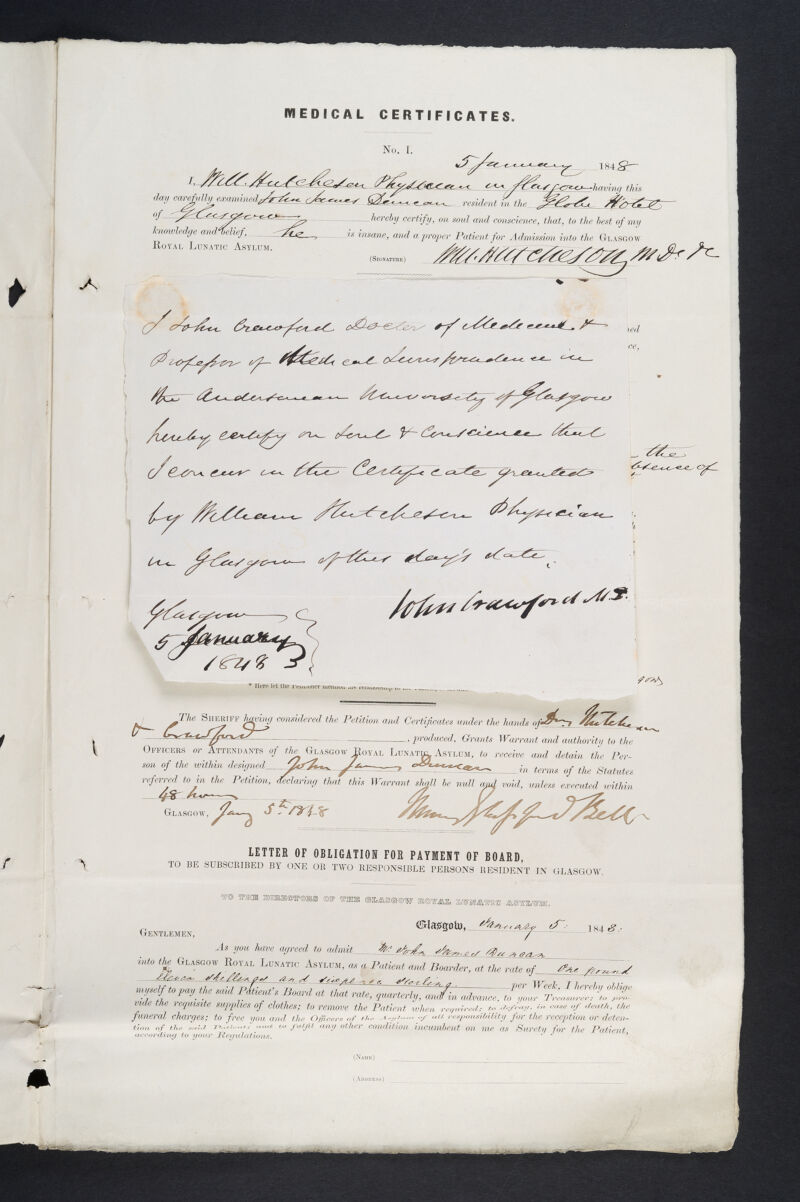 MEDICAL CERTIFICATES.
No. I.
5 January 1848
I, Will. Hutcheson Physician in Glasgow having this
day carefully examined John James Duncan resident in the Globe Hotel
of Glasgow hereby certify, on soul and conscience, that, to the best of my
knowledge and belief, he is insane, and a proper Patient for Admission into the GLASGOW
ROYAL LUNATIC ASYLUM.
(SIGNATURE) Will. Hutcheson, M.D. &c
I John Crawford Doctor of Medicine &
Professor of Medical Jurisprudence in
the Andersonian University of Glasgow
hereby certify on soul & conscience that
I concur in the Certificate granted
by William Hutcheson Physician
in Glasgow of this day's date.
the
absence of
John Crawford M.D.
Glasgow
5 January
1848
The SHERIFF having considered the Petition and Certificates under the hands of Drs Hutcheson
& Crawford, produced, Grants Warrant and authority to the
OFFICERS or ATTENDANTS of the GLASGOW ROYAL LUNATIC ASYLUM, to receive and detain the Per-
son of the within designed John James Duncan in terms of the Statutes
referred to in the Petition, declaring that this Warrant shall be null and void, unless executed within
48 hours
GLASGOW, Jany 5th 1848 Bell
LETTER OF OBLIGATION FOR PAYMENT OF BOARD,
TO BE SUBSCRIBED BY ONE OR TWO RESPONSIBLE PERSONS RESIDENT IN GLASGOW.
TO THE DIRECTORS OF THE GLASGOW ROYAL LUNATIC ASYLUM.
Glasgow, January 5. 1848.
GENTLEMEN,
As you have agreed to admit Mr John James Duncan
into the GLASGOW ROYAL LUNATIC ASYLUM, as a Patient and Boarder, at the rate of One pound
Eleven shillings and sixpence sterling per Week. I hereby oblige
myself to pay the said Patient's Board at that rate, quarterly, and in advance, to your Treasurer; to pro-
vide the requisite supplies of clothes; to remove the Patient when required; to defray, in case of death, the
funeral charges; to free you and the Officers of the Asylum of all responsibility for the reception or deten-
tion of the said Patient; and to fulfil any other condition incumbent on me as Surety for the Patient,
according to your Regulations.
(NAME)
(ADDRESS)